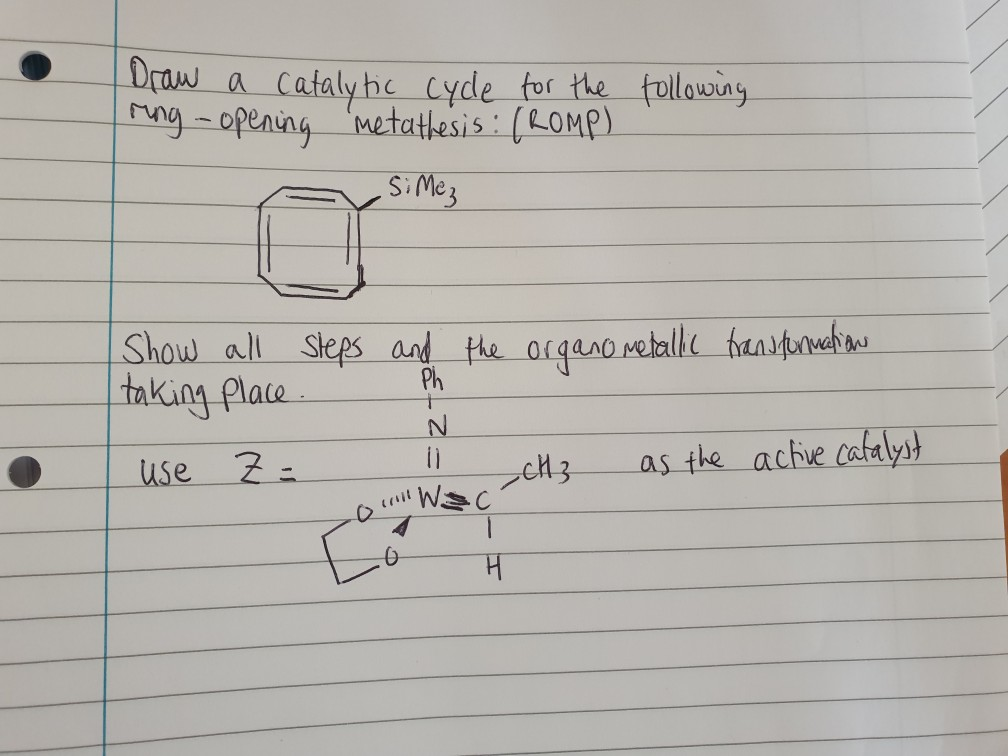 Draw a catalytic cycle for the following
ring-opening metathesis: (ROMP)
SiMe3
Show all steps and the organometallic transformation
taking place.
Ph
N
use Z = as the active catalyst
CH3
O W C
O
H